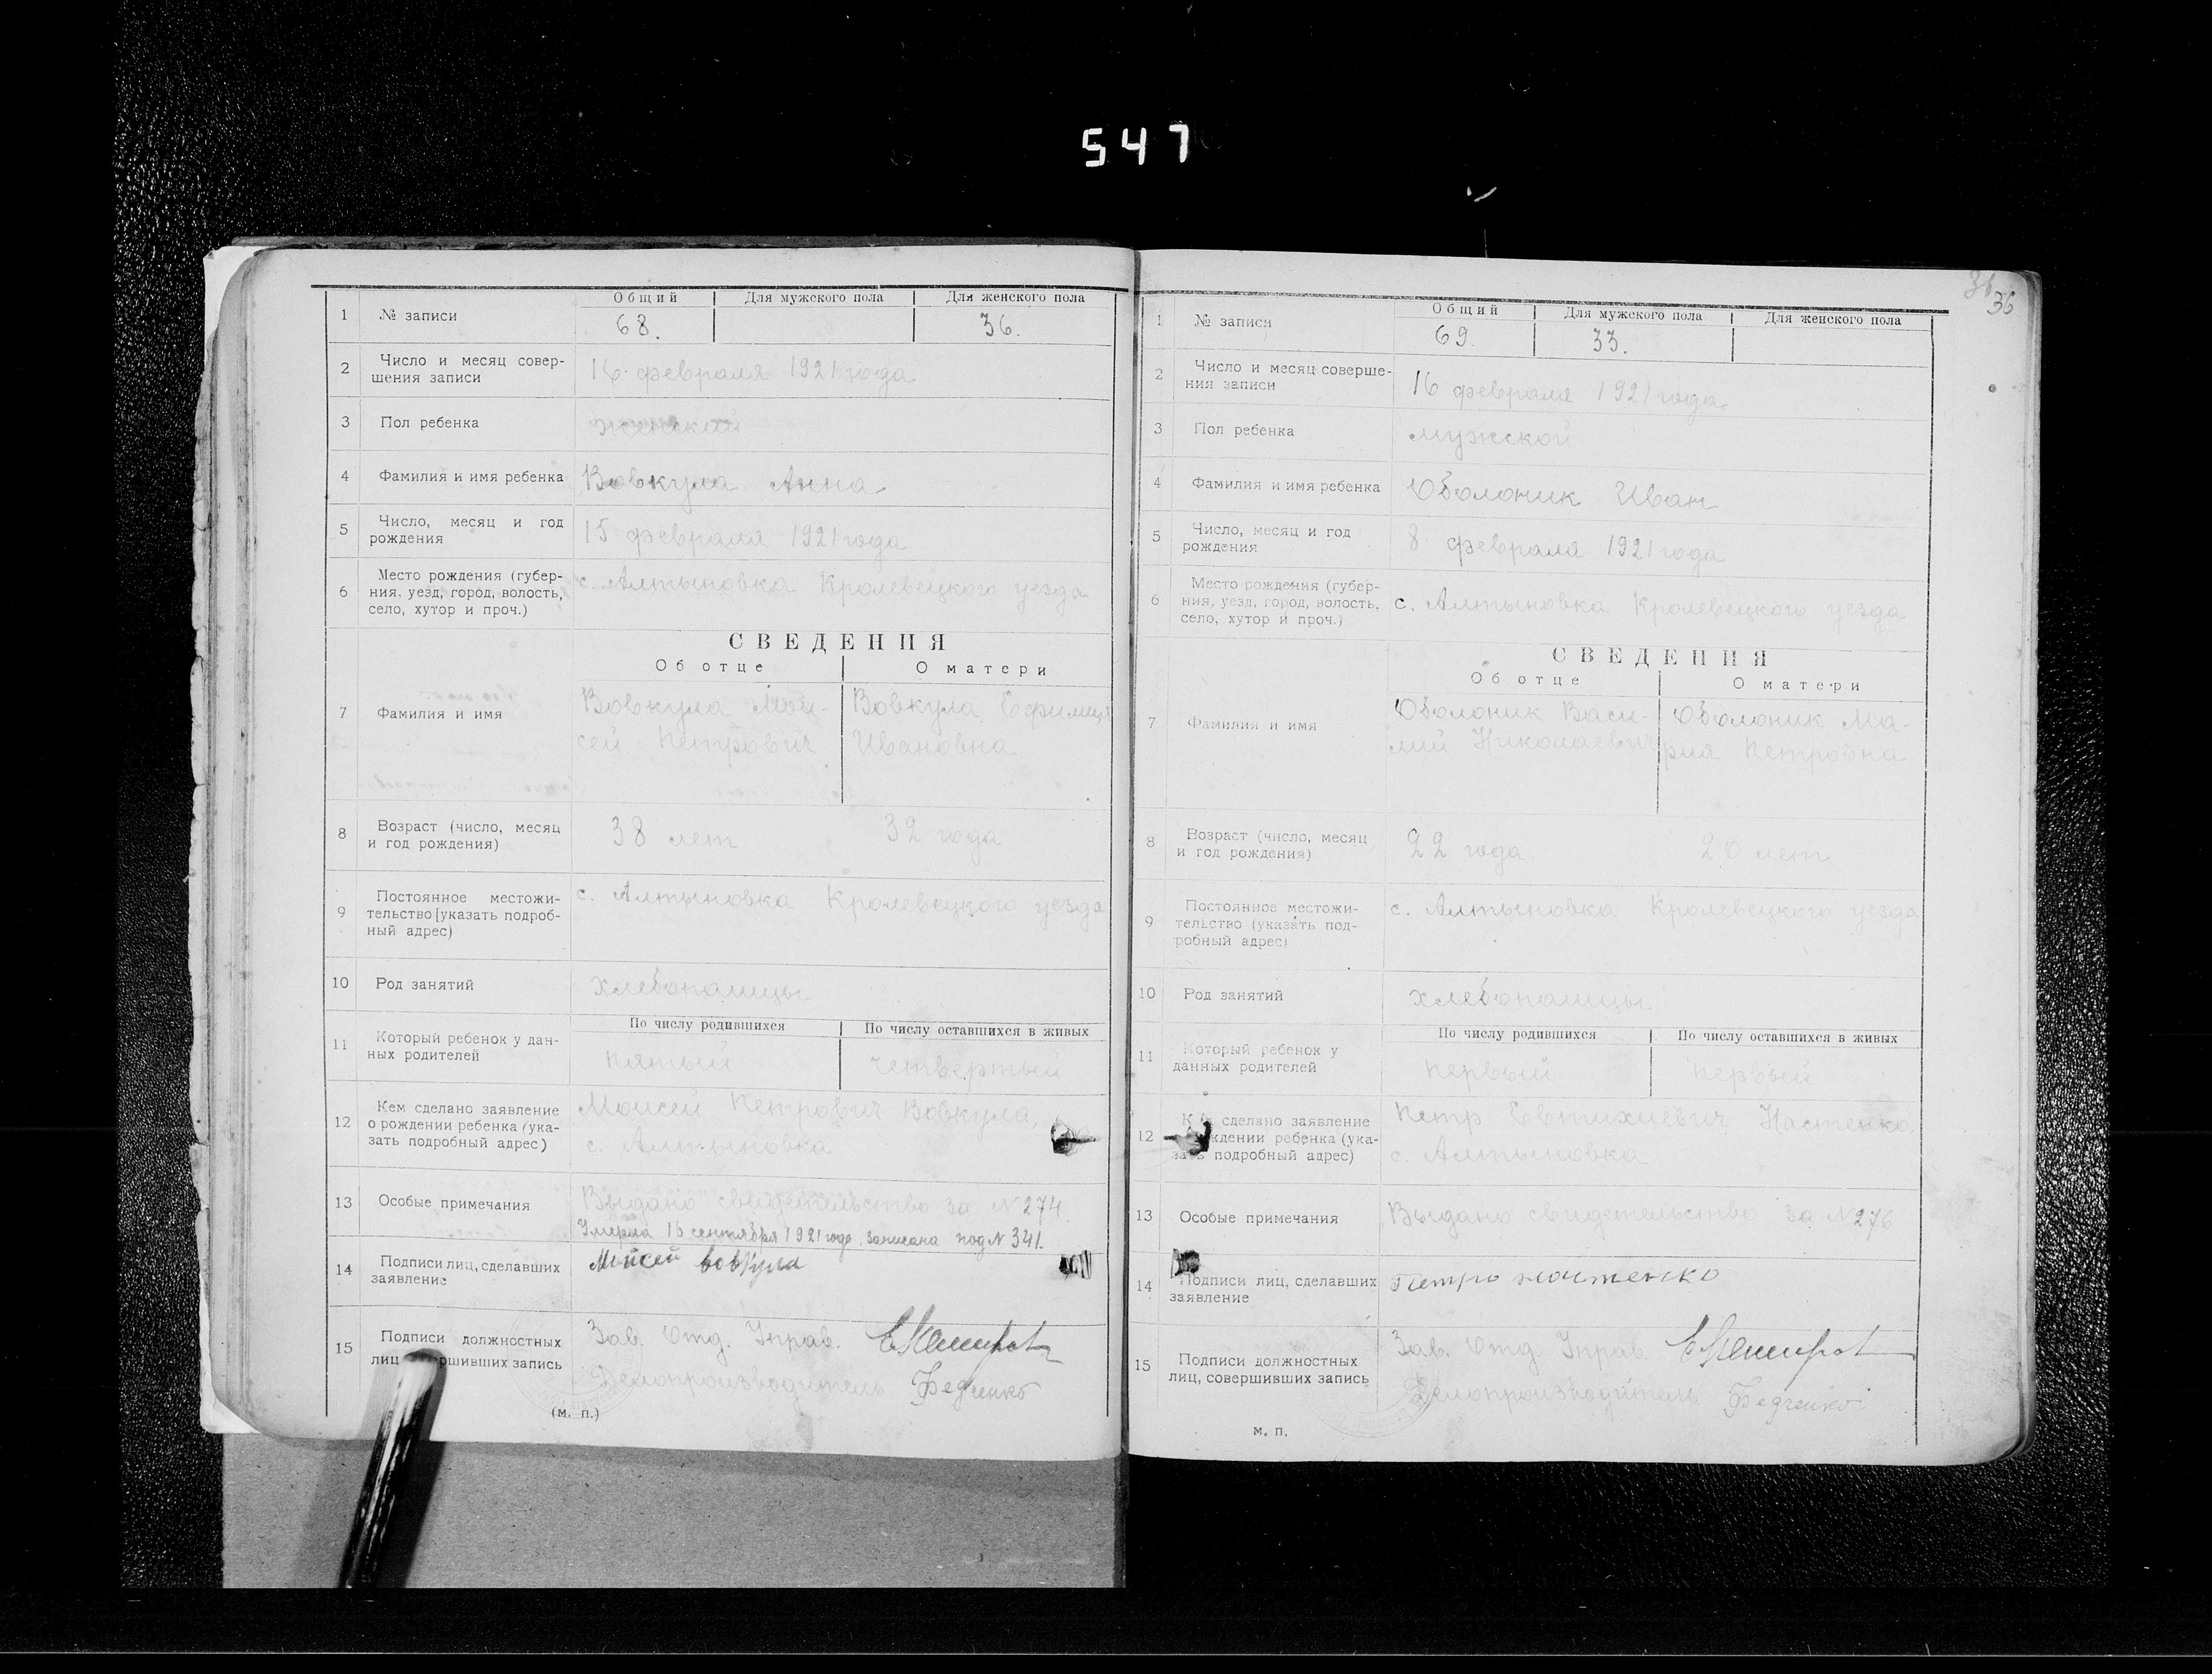 547
1 № записи
Общий Для мужского пола Для женского пола
68. 36.
2 Число и месяц совер-
шения записи
16 февраля 1921 года
3 Пол ребенка женский
4 Фамилия и имя ребенка Вовкула Анна
5 Число, месяц и год
рождения
15 февраля 1921 года
6 Место рождения (губер-
ния, уезд, город, волость,
село, хутор и проч.)
с. Алтыновка Кролевецкого уезда
СВЕДЕНИЯ
Об отце О матери
7 Фамилия и имя
Вовкула Мои-
сей Петрович
Вовкула Ефимия
Ивановна
8 Возраст (число, месяц
и год рождения)
38 лет 32 года
9 Постоянное местожи-
тельство [указать подроб-
ный адрес)
с. Алтыновка Кролевецкого уезда
10 Род занятий хлебопашцы
11 Который ребенок у дан-
ных родителей
По числу родившихся По числу оставшихся в живых
пятый четвертый
12 Кем сделано заявление
о рождении ребенка (ука-
зать подробный адрес)
Моисей Петрович Вовкула,
с. Алтыновка
13 Особые примечания
Выдано свидетельство за № 274
Умерла 16 сентября 1921 года. записана под № 341.
14 Подписи лиц, сделавших
заявление
Мойсей Вовкула
15 Подписи должностных
лиц ршивших запись
Зав. Отд. Управ.
Делопроизводитель Федченко
(м. п.)
36
1 № записи
Общий Для мужского пола Для женского пола
69. 33.
2 Число и месяц соверше-
ния записи
16 февраля 1921 года
3 Пол ребенка мужской
4 Фамилия и имя ребенка Оболоник Иван
5 Число, месяц и год
рождения
8 февраля 1921 года
6 Место рождения (губер-
ния, уезд, город, волость,
село, хутор и проч.)
с. Алтыновка Кролевецкого уезда
СВЕДЕНИЯ
Об отце О матери
7 Фамилия и имя
Оболоник Васи-
лий Николаевич
Оболоник Ма-
рия Петровна
8 Возраст (число, месяц
и год рождения)
22 года 20 лет
9 Постоянное местожи-
тельство (указать под-
робный адрес)
с. Алтыновка Кролевецкого уезда
10 Род занятий хлебопашцы
11 Который ребенок у
данных родителей
По числу родившихся По числу оставшихся в живых
первый первый
12 сделано заявление
ждении ребенка (ука-
зать подробный адрес)
Петр Евтихиевич Настенко
с. Алтыновка
13 Особые примечания
Выдано свидетельство за № 276
14 Подписи лиц, сделавших
заявление
Петро настенко
15 Подписи должностных
лиц, совершивших запись
Зав. Отд. Управ.
Делопроизводитель Федченко
м. п.